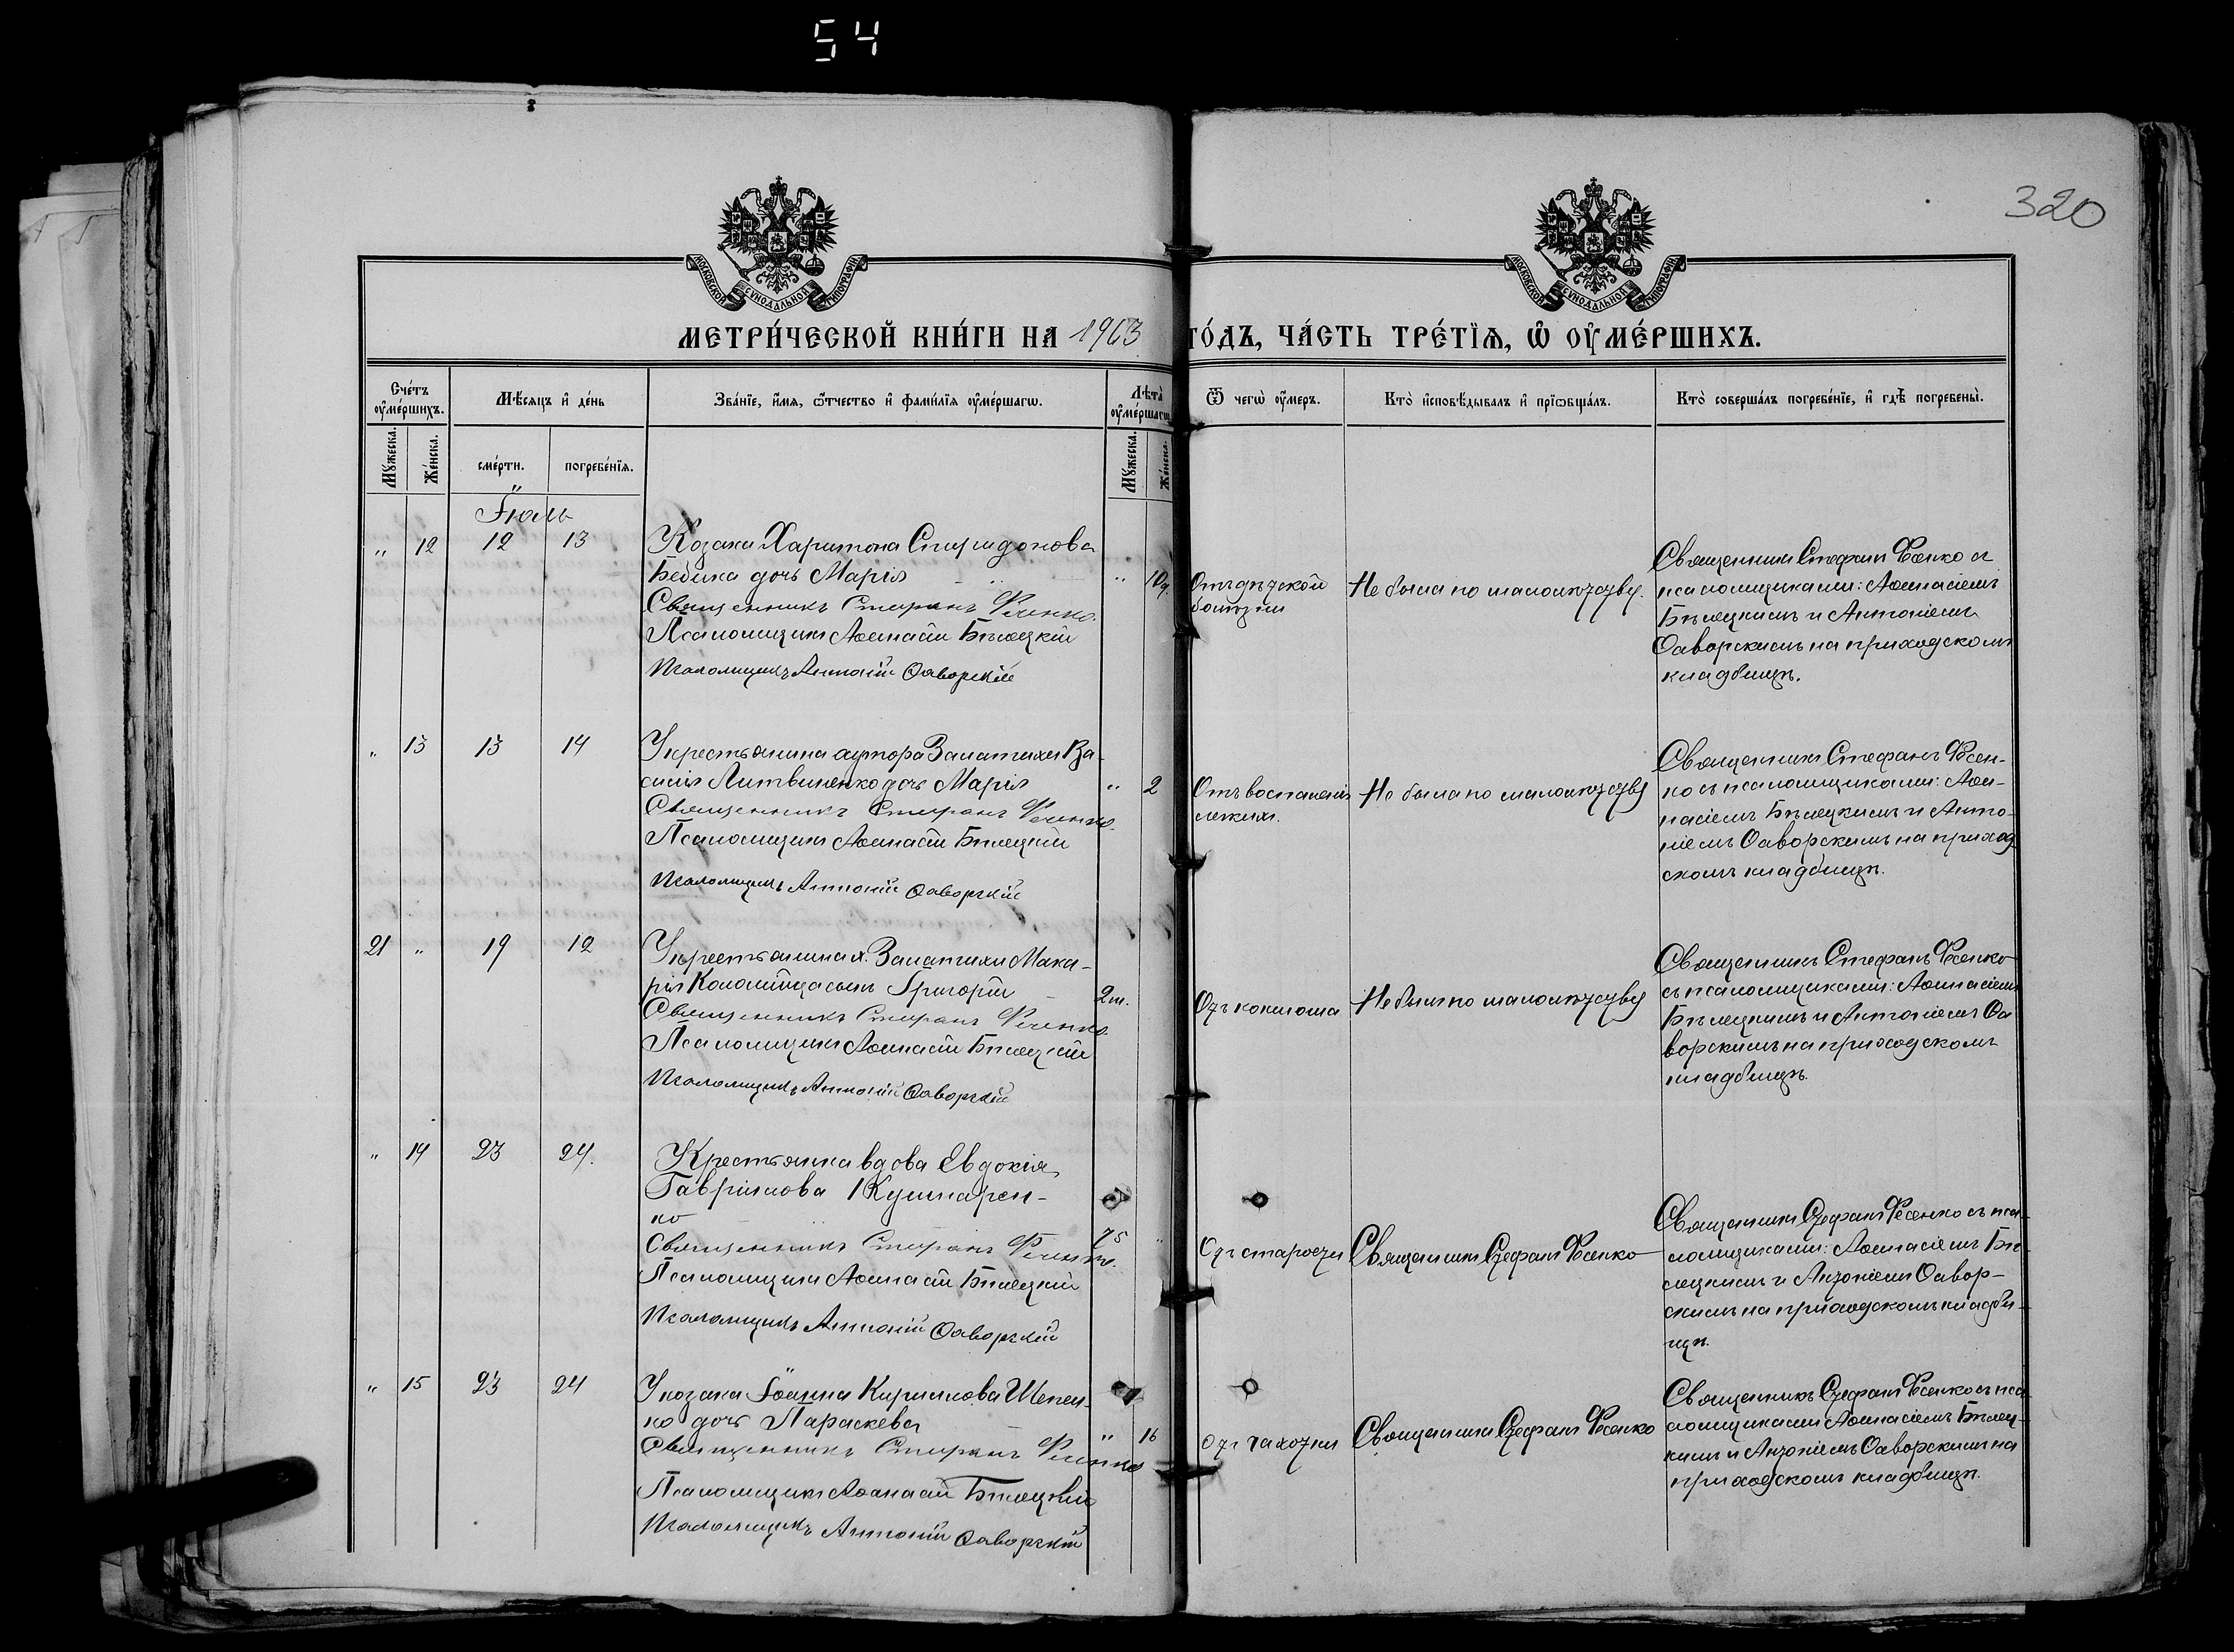 54
320
МОСКОВСКОЙ СѴНОДАЛЬНОЙ ТИПОГРАФІИ
МОСКОВСКОЙ СѴНОДАЛЬНОЙ ТИПОГРАФІИ
МЕТРИ́ЧЕСКОЙ КНИ́ГИ НА 1903 ГО́ДЪ, ЧА́СТЬ ТРЕ́ТІѦ, Ѡ ОУМЕ́РШИХЪ.
Сче́тъ оуме́ршихъ.
Мѣсяцъ и де́нь
Зва́нїе, и́мя, ѻ́тчество и фами́лїя оуме́ршагѡ.
Лѣта̀ оуме́ршагѡ
Ѿ чегѡ̀ оу́меръ.
Кто̀ и҆сповѣ́дывалъ и҆ прїѡбща́лъ.
Кто̀ соверша́лъ погребе́нїе, и҆ гдѣ̀ погребены̀.
Мꙋ́жеска. Же́нска. сме́рти. погребе́нїя. Мꙋ́жеска. Же́нска.
Іюль
" 12 12 13
Козака Харитона Спиридонова
Бебика дочь Марія
Священникъ Стефанъ Ѳесенко.
Псаломщикъ Аѳанасій Бѣлецкій
Псаломщикъ Антоній Саворскій
"
Отъ дѣтской
болѣзни
Не была по малолѣтству.
Священникъ Стефанъ Ѳесенко съ
псаломщиками: Аѳанасіемъ
Бѣлецкимъ и Антоніемъ
Саворскимъ на приходскомъ
кладбищѣ.
" 13 13 14
У крестьянина хутора Запатихи Ва-
силія Литвиненко дочь Марія
Священникъ Стефанъ Ѳесенко.
Псаломщикъ Аѳанасій Бѣлецкій
Псаломщикъ Антоній Саворскій
" 2
Отъ воспаленія
легкихъ.
Не была по малолѣтству
Священникъ Стефанъ Ѳесен-
ко съ псаломщиками: Аѳа-
насіемъ Бѣлецкимъ и Анто-
ніемъ Саворскимъ на приход
скомъ кладбищѣ.
21 " 19 12
У крестьянина х. Запатихи Мака-
рія Коломійца сынъ Григорій
Священникъ Стефанъ Ѳесенко.
Псаломщикъ Аѳанасій Бѣлецкій
Псаломщикъ Антоній Саворскій
2 м.
Отъ коклюша
Не былъ по малолѣтству
Священникъ Стефанъ Ѳесенко
съ псаломщиками: Аѳанасіемъ
Бѣлецкимъ и Антоніемъ Са
ворскимъ на приходскомъ
кладбищѣ.
" 14 23 24.
Крестьянка вдова Евдокія
Гавріилова Кушнарен-
ко
Священникъ Стефанъ Ѳесенко.
Псаломщикъ Аѳанасій Бѣлецкій
Псаломщикъ Антоній Саворскій
75 "
Отъ старости
Священникъ Стефанъ Ѳесенко
Священникъ Стефанъ Ѳесенко съ пса-
ломщиками: Аѳанасіемъ Бѣ-
лецкимъ и Антоніемъ Савор-
скимъ на приходскомъ кладби-
щѣ.
" 15 23 24
У козака Іоанна Кириллова Шепен-
ко дочь Параскева
Священникъ Стефанъ Ѳесенко
Псаломщикъ Аѳанасій Бѣлецкій
Псаломщикъ Антоній Саворскій
" 16
Отъ чахотки
Священникъ Стефанъ Ѳесенко
Священникъ Стефанъ Ѳесенко съ пса-
ломщиками Аѳанасіемъ Бѣлец-
кимъ и Антоніемъ Саворскимъ на
приходскомъ кладбищѣ.